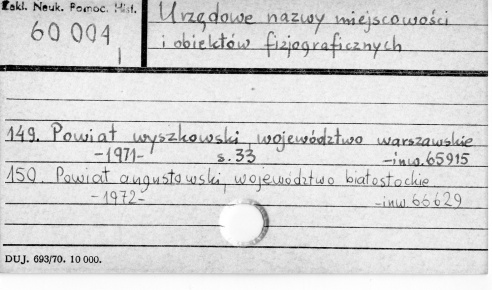 Zakl. Nauk. Pomoc. Hist.
60 004
1
Urzędowe nazwy miejscowości
i obiektów fizjograficznych
149. Powiat wyszkowski, województwo warszawskie
-1971- s.33 -inw.65915
150. Powiat augustowski, województwo białostockie
-1972- -inw.66629
DUJ. 693/70. 10 000.